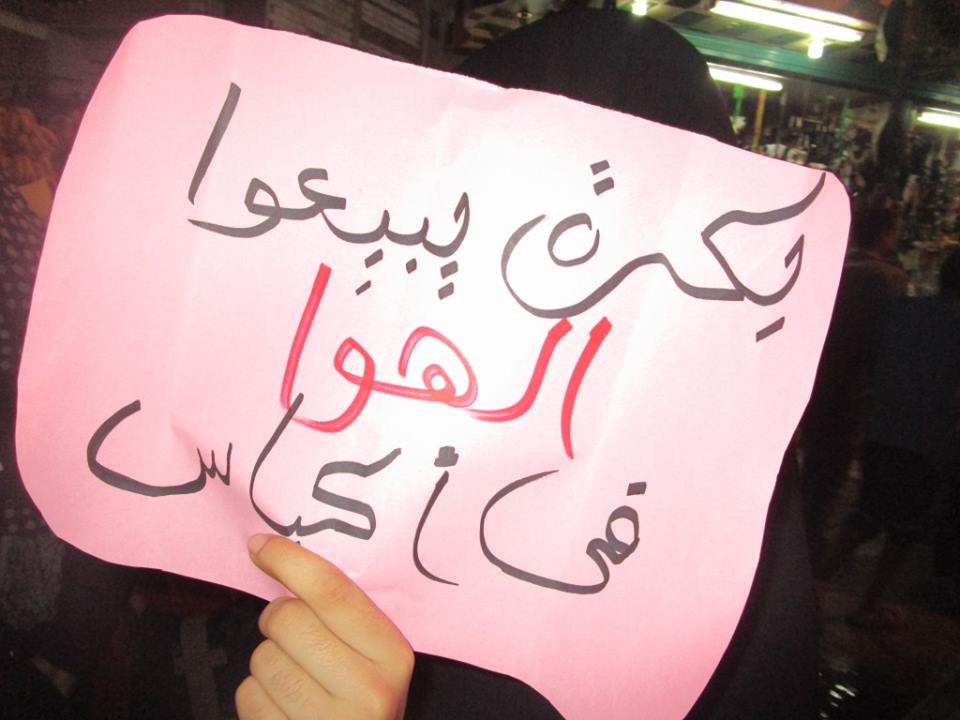 يكش يبيعوا
الهوا
فى أكياس